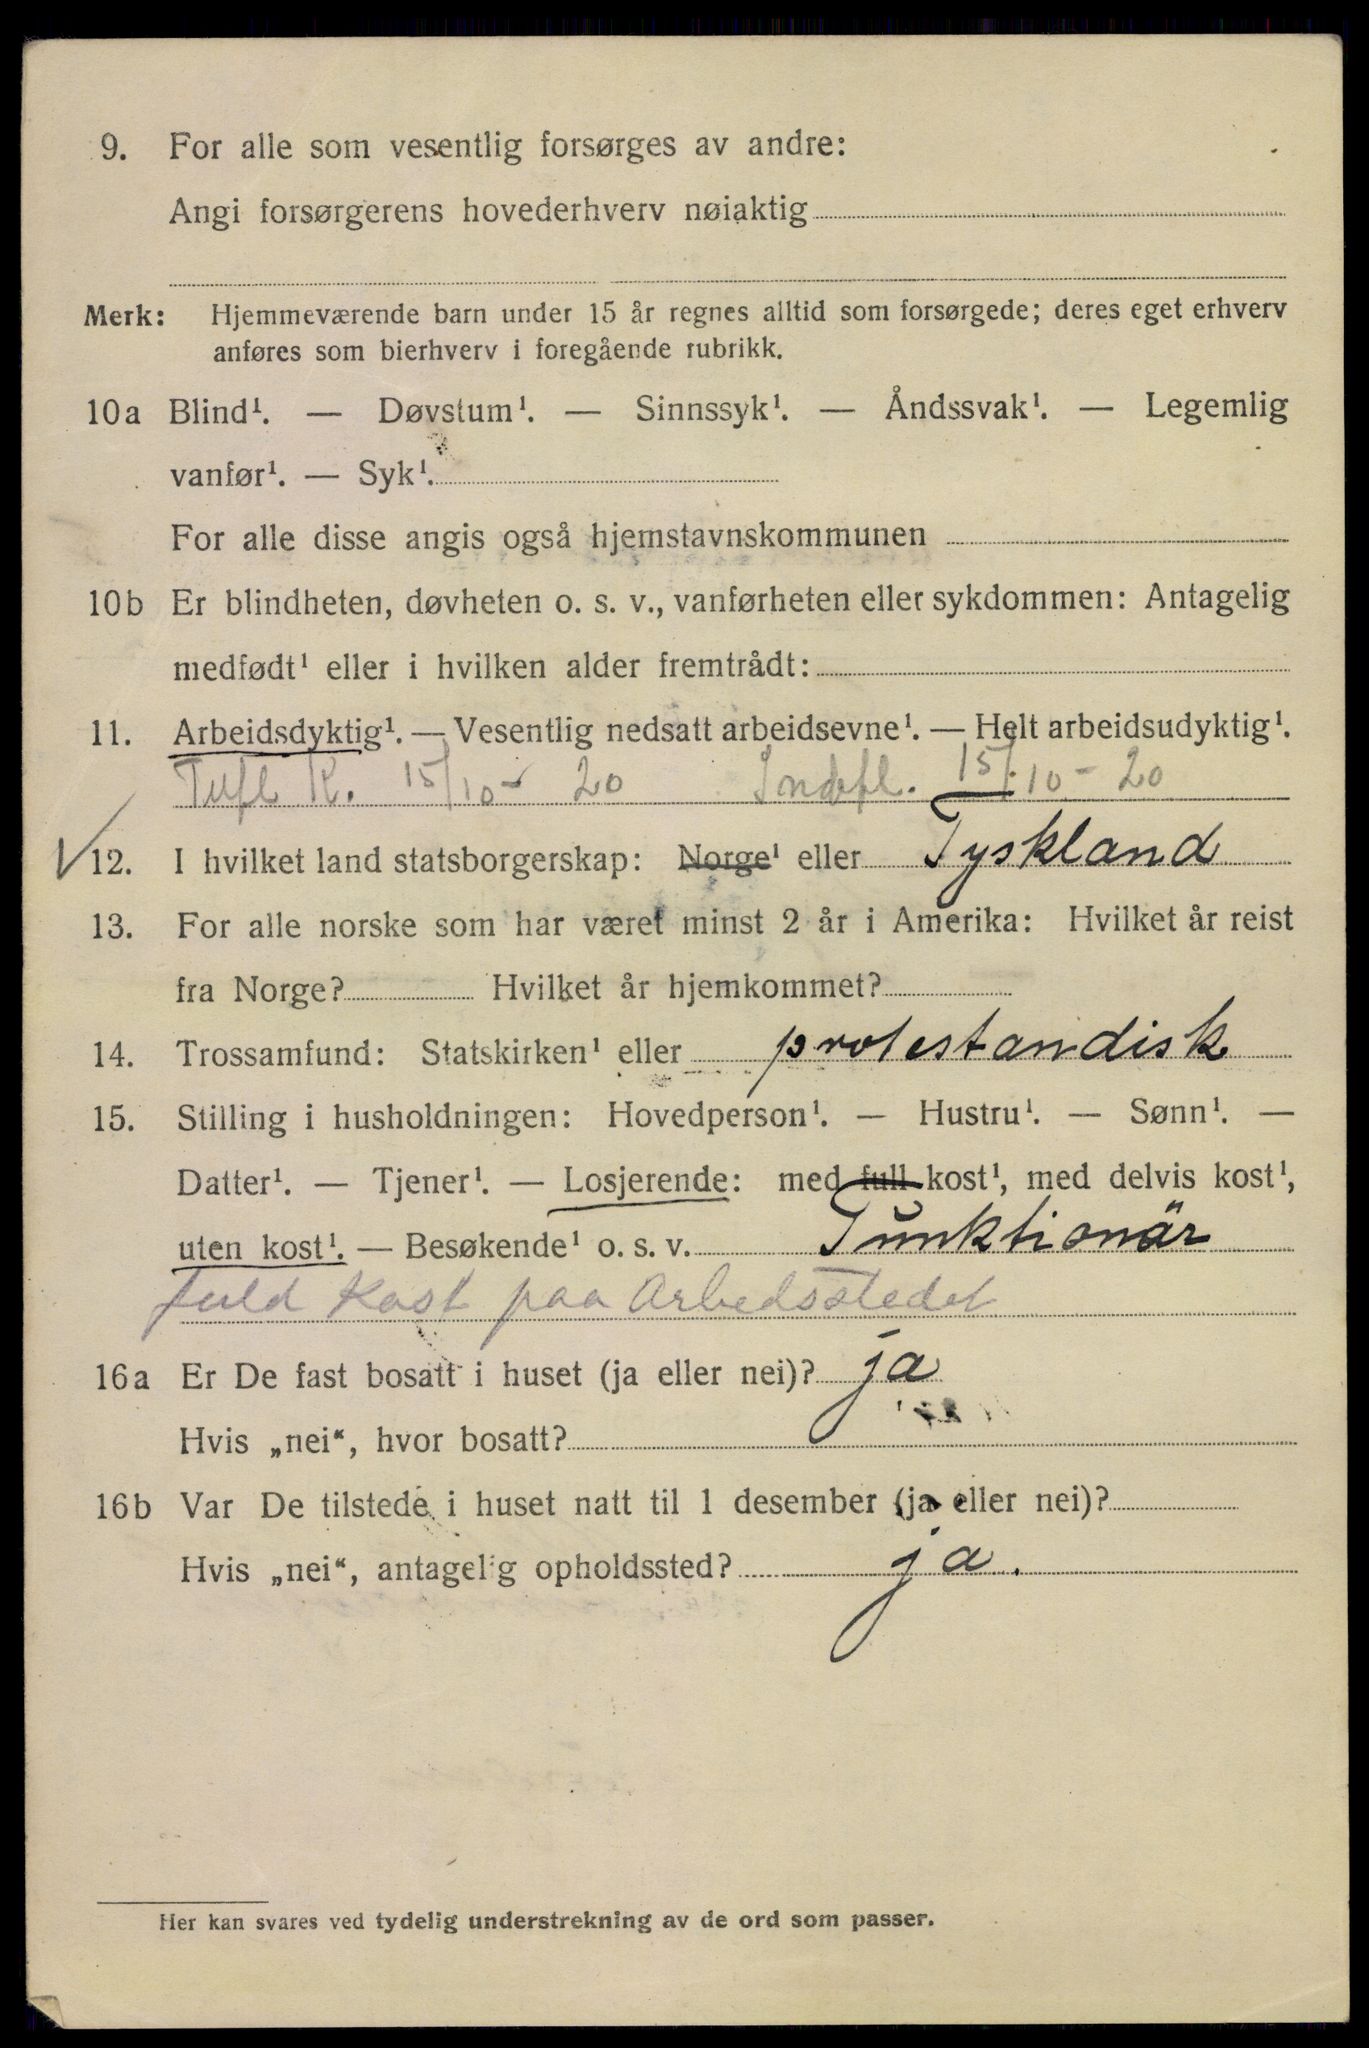 9. For alle som vesentlig forsørges av andre:
Angi forsørgerens hovederhverv nøiaktig
Merk: Hjemmeværende barn under 15 år regnes alltid som forsørgede; deres eget erhverv
anføres som bierhverv i foregående rubrikk.
10a Blind¹. — Døvstum¹. — Sinnssyk¹. — Åndssvak¹. — Legemlig
vanfør¹. — Syk¹.
For alle disse angis også hjemstavnskommunen
10b Er blindheten, døvheten o. s. v., vanførheten eller sykdommen: Antagelig
medfødt¹ eller i hvilken alder fremtrådt:
11. Arbeidsdyktig¹. — Vesentlig nedsatt arbeidsevne¹. — Helt arbeidsudyktig¹.
Tufl K. 15/10 - 20 Indfl. 15/10 - 20
12. I hvilket land statsborgerskap: Norge¹ eller Tyskland
13. For alle norske som har været minst 2 år i Amerika: Hvilket år reist
fra Norge? Hvilket år hjemkommet?
14. Trossamfund: Statskirken¹ eller protestandisk
15. Stilling i husholdningen: Hovedperson¹. — Hustru¹. — Sønn¹. —
Datter¹. — Tjener¹. — Losjerende: med full kost¹, med delvis kost¹,
uten kost¹. — Besøkende¹ o. s. v. Funktionär
fuld Kost paa Arbedsstedet
16a Er De fast bosatt i huset (ja eller nei)? ja
Hvis „nei“, hvor bosatt?
16b Var De tilstede i huset natt til 1 desember (ja eller nei)?
Hvis „nei“, antagelig opholdssted? ja.
Her kan svares ved tydelig understrekning av de ord som passer.